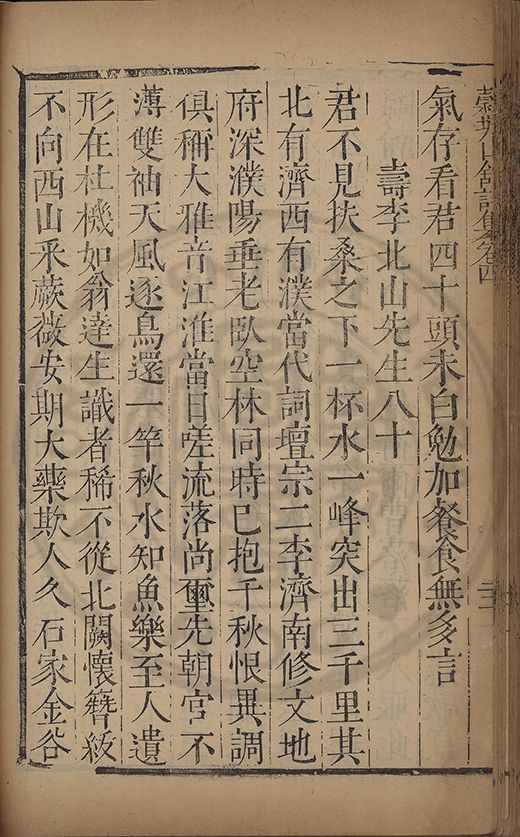 穀城山館詩集卷四
氣存看君四十頭未白勉加餐食無多言
壽李北山先生八十
君不見扶桑之下一杯水一峰突出三千里其
北有濟西有濮當代詞壇宗二李濟南修文地
府深濮陽垂老臥空林同時已抱千秋恨異調
俱稱大雅音江淮當日嗟流落尚璽先朝官不
薄雙袖天風逐鳥還一竿秋水知魚樂至人遺
形在杜機如翁達生識者稀不從北闕懷簪紱
不向西山采蕨薇安期大藥欺人久石家金谷